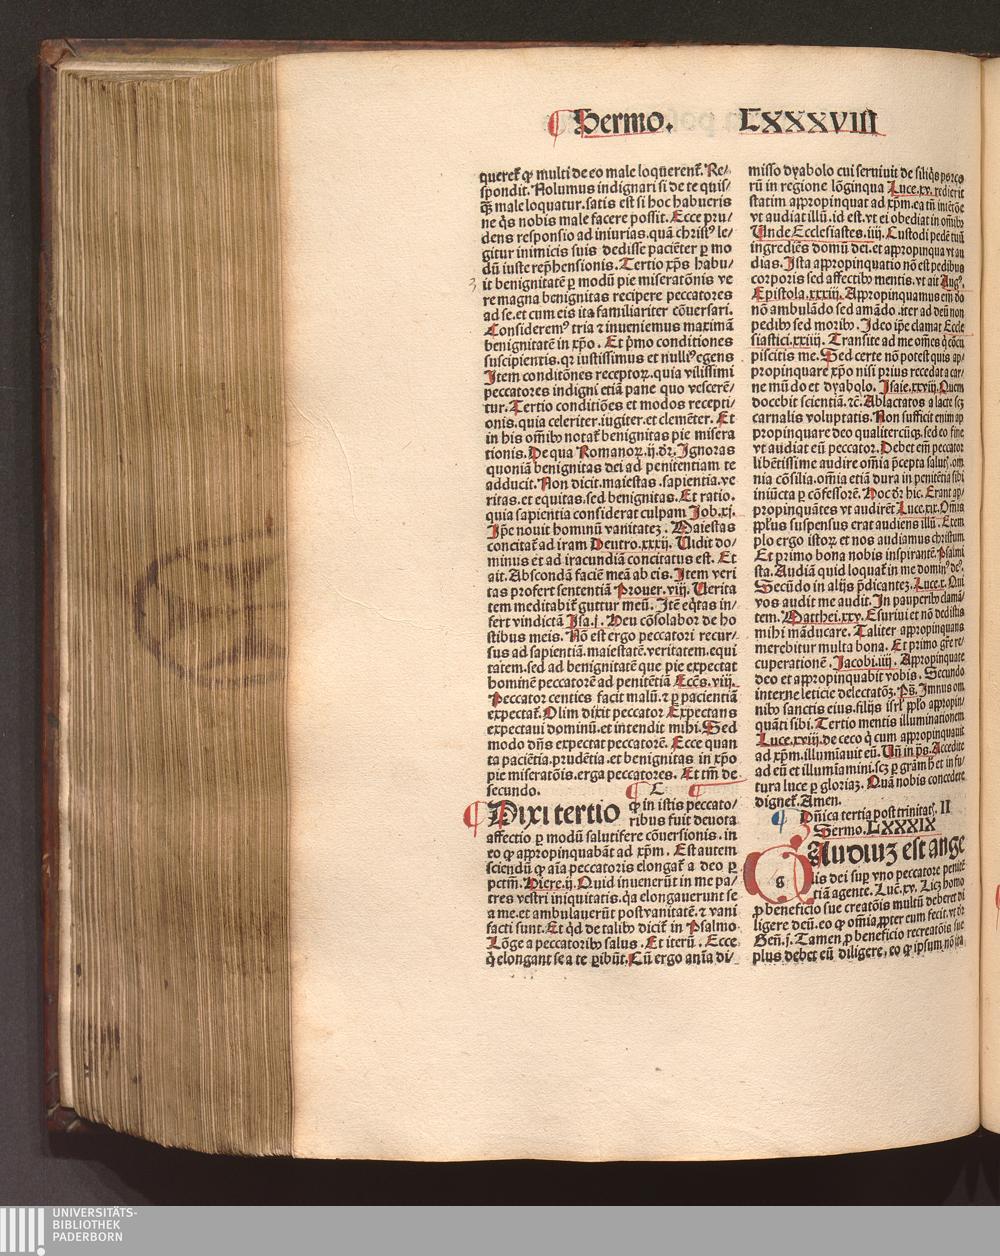 Sermo. LXXXVIII
queret᷑ ꝙ multi de eo male loquerent᷑. Re/
spondit. Nolumus indignari si de te quis/
ꝗ̄ male loquatur. satis est si hoc habueris
ne q̇s nobis male facere possit. Ecce pru/
dens responsio ad iniurias. quā christꝰ le/
gitur inimicis suis dedisse paciēter ꝑ mo
dū iuste rep̄hensionis. Tertio xp̄s habu/
it benignitatē ꝑ modū pie miseratōnis ve
re magna benignitas recipere peccatores
ad se. et cum eis ita familiariter cōuersari.
Consideremꝰ tria ⁊ inueniemus maximā
benignitatē in xp̄o. Et p̄mo conditiones
suscipientis. qr iustissimus et nulliꝰ egens
Item conditōnes receptoꝝ. quia vilissimi
peccatores indigni etiā pane quo vescerē/
tur. Tertio conditiōes et modos recepti/
onis. quia celeriter. iugiter. et clemēter. Et
in his om̄ibꝫ notat᷑ benignitas pie misera
tionis. De qua Romanoꝝ. ij. dr̄. Ignoras
quoniā benignitas dei ad penitentiam te
adducit. Non dicit. maiestas. sapientia. ve
ritas. et equitas. sed benignitas. Et ratio.
quia sapientia considerat culpam Job. xj.
Ip̄e nouit hominū vanitateꝫ. Maiestas
concitat᷑ ad iram Deutro. xxxij. Uidit do/
minus et ad iracundiā concitatus est. Et
ait. Abscondā faciē meā ab eis. Item veri
tas profert sententiā Prouer. viij. Uerita
tem meditabit᷑ guttur meū. Itē eq̇tas in/
fert vindictā Isa. j. Heu cōsolabor de ho
stibus meis. Nō est ergo peccatori recur/
sus ad sapientiā. maiestatē. veritatem. equi
tatem. sed ad benignitatē que pie expectat
hominē peccatorē ad penitētiā Eccēs. viij.
Peccator centies facit malū. ⁊ ꝑ pacientiā
expectat᷑. Olim dixit peccator Expectans
expectaui dominū. et intendit mihi. Sed
modo dn̄s expectat peccatorē. Ecce quan
ta paciētia. prudētia. et benignitas in xp̄o
pie miseratōis. erga peccatores. Et tm̄ de
secundo. C
Dixi tertio ꝙ in istis peccato/
ribus fuit deuota
affectio ꝑ modū salutifere cōuersionis. in
eo ꝙ appropinquabāt ad xp̄m. Est autem
sciendū ꝙ aīa peccatoris elongat᷑ a deo ꝑ
pctm̄. Hiere. ij. Quid inuenerūt in me pa/
tres vestri iniquitatis. q̇a elongauerunt se
a me. et ambulauerūt post vanitatē. ⁊ vani
facti sunt. Et q̇d de talibꝫ dicit᷑ in Psalmo
Lōge a peccatoribꝫ salus. Et iterū. Ecce
q̇ elongant se a te ꝑibūt. Cū ergo anīa di/
misso dyabolo cui seruiuit de siliq̇s porco
rū in regione lōginqua Luce. xv. redierit
statim appropinquat ad xp̄m. ea tn̄ intētōe
vt audiat illū. id est. vt ei obediat in om̄ibꝫ
Unde Ecclesiastes. iiij. Custodi pedē tuū
ingrediēs domū dei. et appropinqua vt au
dias. Ista appropinquatio nō est pedibus
corporis sed affectibꝫ mentis. vt ait Augꝰ.
Epistola. xxxiij. Appropinquamus em̄ do
nō ambulādo sed amādo. iter ad deū non
pedibꝫ sed moribꝫ. Ideo ip̄e clamat Eccle
siastici. xxiiij. Transite ad me om̄es q̇ cōcu
piscitis me. Sed certe nō potest quis ap/
propinquare xp̄o nisi prius recedat a car/
ne mūdo et dyabolo. Isaie. xxviij. Quem
docebit scientiā. ⁊c̄. Ablactatos a lacte scꝫ
carnalis voluptatis. Non sufficit enim ap
propinquare deo qualitercūqꝫ. sed eo fine
vt audiat eū peccator. Debet em̄ peccator
libētissime audire om̄ia p̄cepta salutꝭ. om
nia cōsilia. om̄ia etiā dura in penitētia sibi
iniūcta ꝑ cōfessorē. Hoc dr̄ hic. Erant ap/
propinquātes vt audirēt Luce. xix. Om̄is
pp̄lus suspensus erat audiens illū. Exem
plo ergo istoꝝ et nos audiamus christum
Et primo bona nobis inspirantē. Psalmi
sta. Audiā quid loquat᷑ in me dominꝰ deꝰ.
Secūdo in alijs p̄dicanteꝫ. Luce. x. Qui
vos audit me audit. In pauperibꝫ clamā/
tem. Matthei. xxv. Esuriui et nō dedistis
mihi māducare. Taliter appropinquans
merebitur multa bona. Et primo gr̄e re/
cuperationē. Jacobi. iiij. Appropinquate
deo et appropinquabit vobis. Secundo
interne leticie delectatōꝫ. Pꝭ. Imnus om
nibꝫ sanctis eius. filijs isrl̄ pp̄lo appropin/
quāti sibi. Tertio mentis illuminationem
Luce. xviij. de ceco q̇ cum appropinquauit
ad xp̄m. illumīauit eū. Un̄ in pꝭ. Accedite
ad eū et illumīamini. scꝫ ꝑ grām hꝭ et in fu/
tura luce ꝑ gloriaꝫ. Quā nobis concedere
dignet᷑. Amen.
Dn̄ica tertia post trinitatꝭ. II
Sermo. LXXXIX
GAudiuꝫ est ange
lis dei suꝑ vno peccatore penitē
tiā agente. Luc̄. xv. Licꝫ homo
ꝓ beneficio sue creatōis multū deberet di
ligere deū. eo ꝙ om̄ia ꝓpter eum fecit. vt dr̄
Gen̄. j. Tamen ꝓ beneficio recreatōis sue
plus debet eū diligere, eo ꝙ ipsum nō ita
UNIVERSITÄTS-
BIBLIOTHEK
PADERBORN